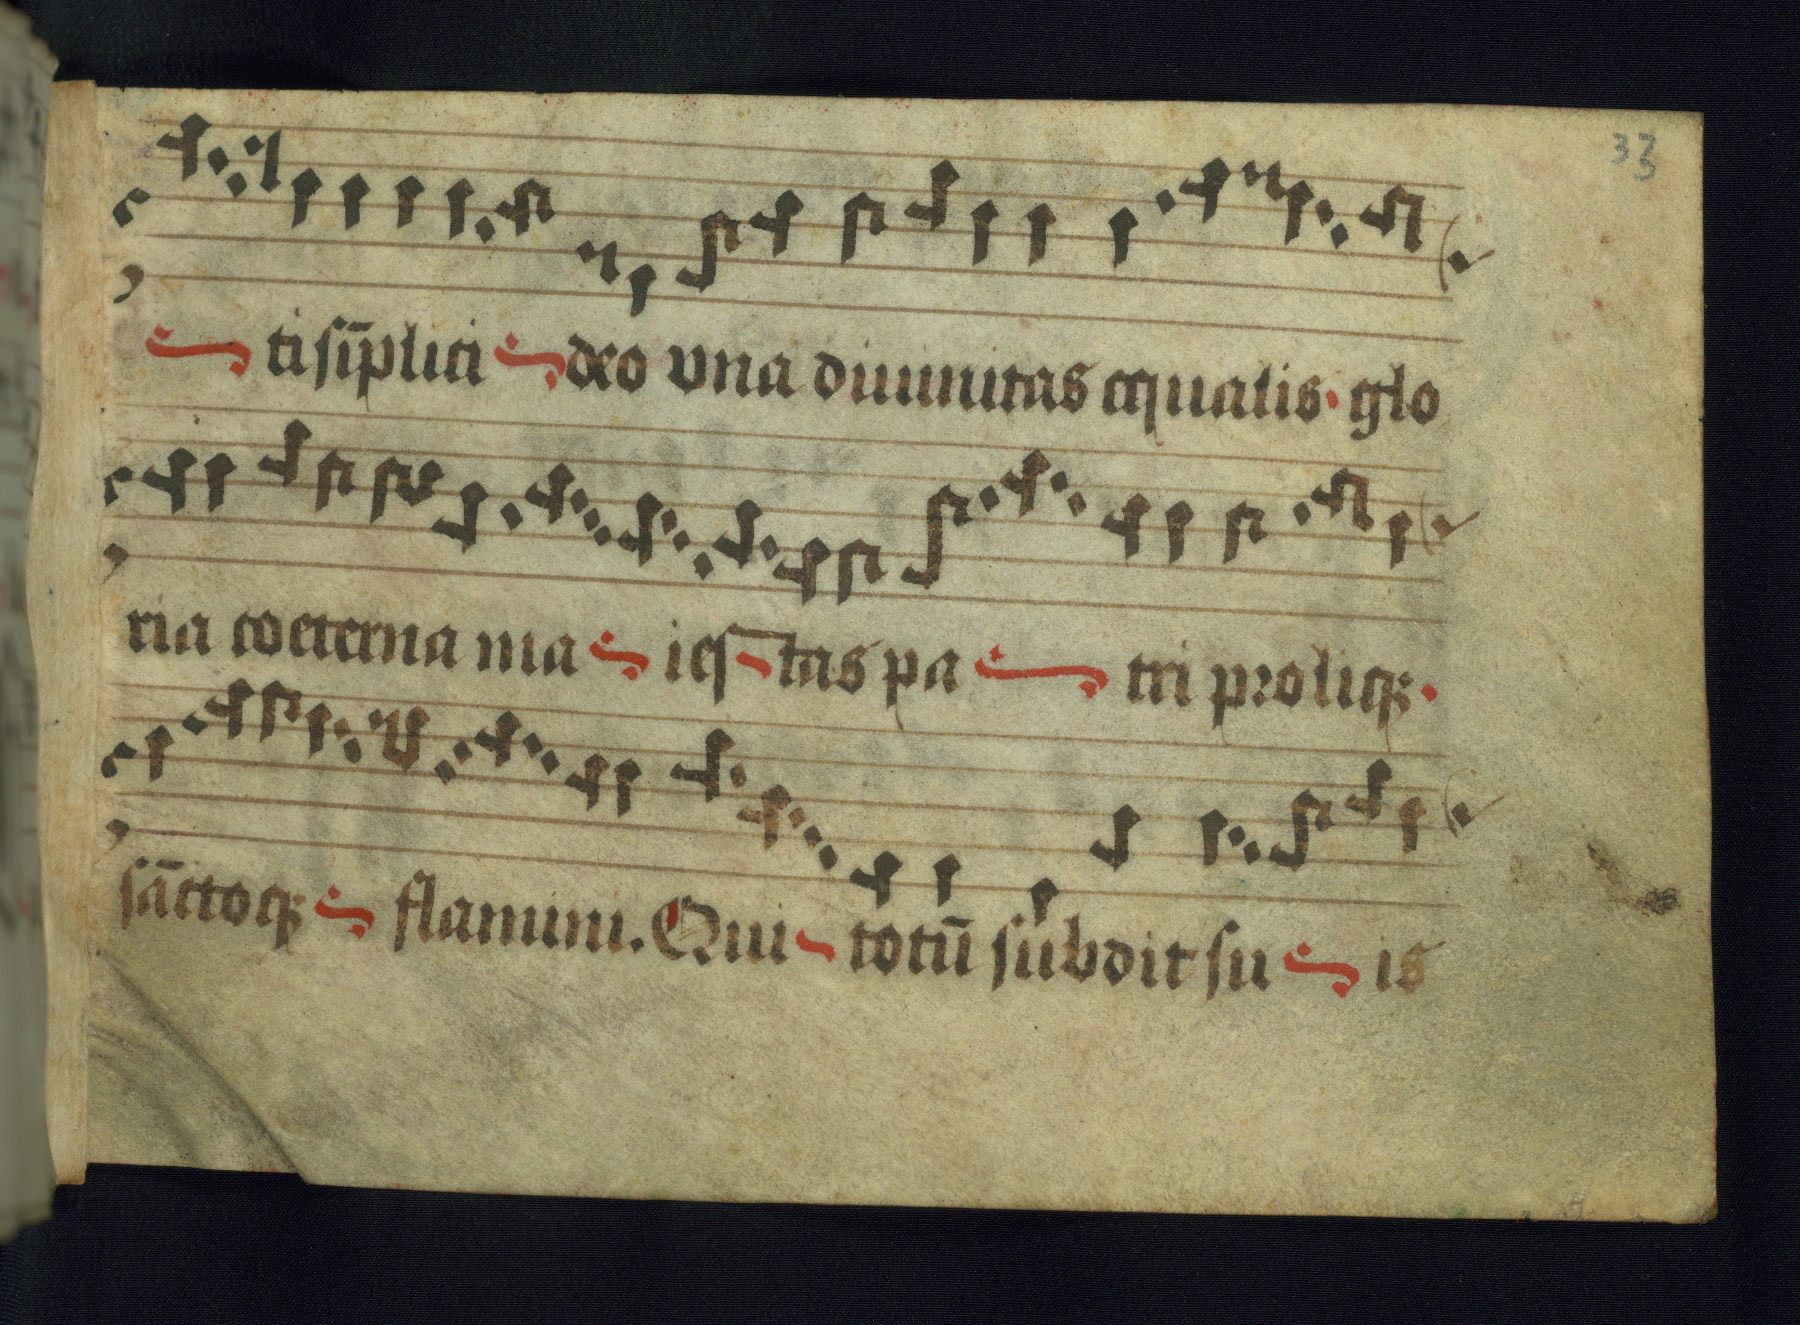 33
ti sīplici deo vna diuinitas equalis · glo
ria coeterna ma iestas pa tri proliqꝫ ·
sāctoqꝫ flamini. Qui totū subdit su is